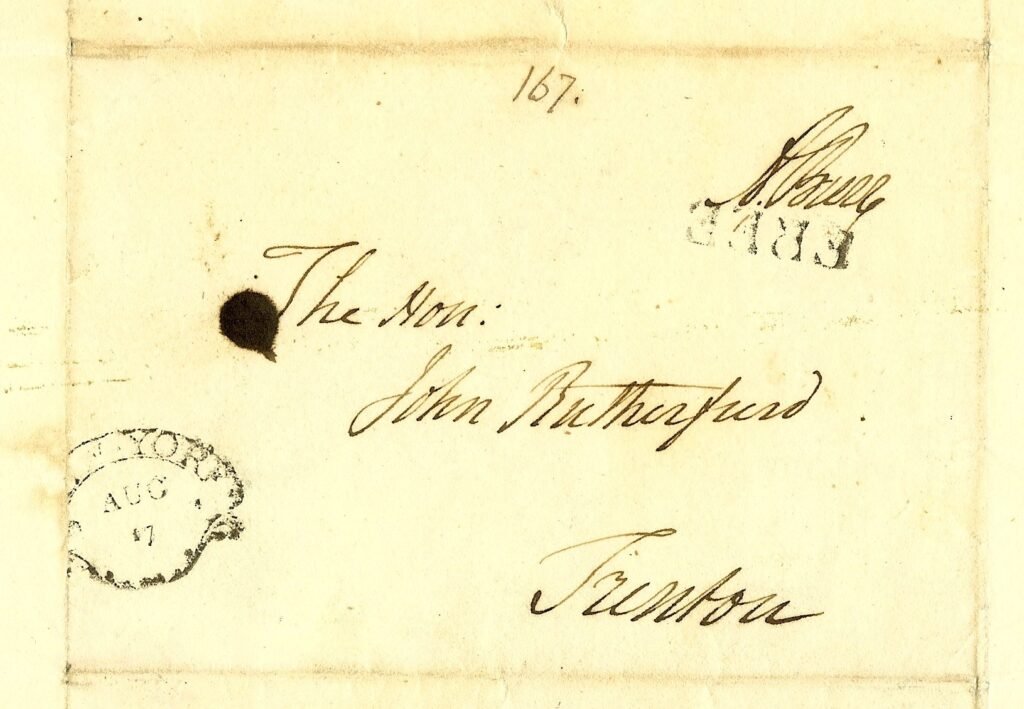 167.
A. Burr
FREE
The Hon:
John Rutherfurd
NEW-YORK
AUG
17
Trenton